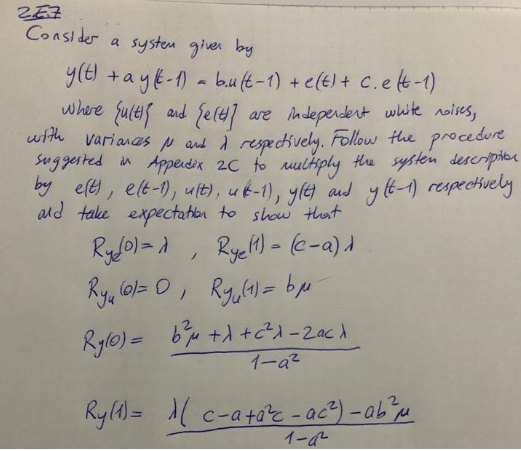 2E7
Consider a system given by
y(t) + a y(t-1) = b.u(t-1) + e(t) + c.e(t-1)
where {u(t)} and {e(t)} are independent white noises,
with variances μ and λ respectively. Follow the procedure
suggested in Appendix 2C to multiply the system description
by e(t), e(t-1), u(t), u(t-1), y(t) and y(t-1) respectively
and take expectation to show that
Rye(0)= λ , Rye(1) = (c-a) λ
Ryu(0)= 0 , Ryu(1) = bμ
Ry(0) = b²μ + λ + c²λ - 2acλ / 1-a²
Ry(1) = λ( c-a+a²c - ac²) - ab²μ / 1-a²